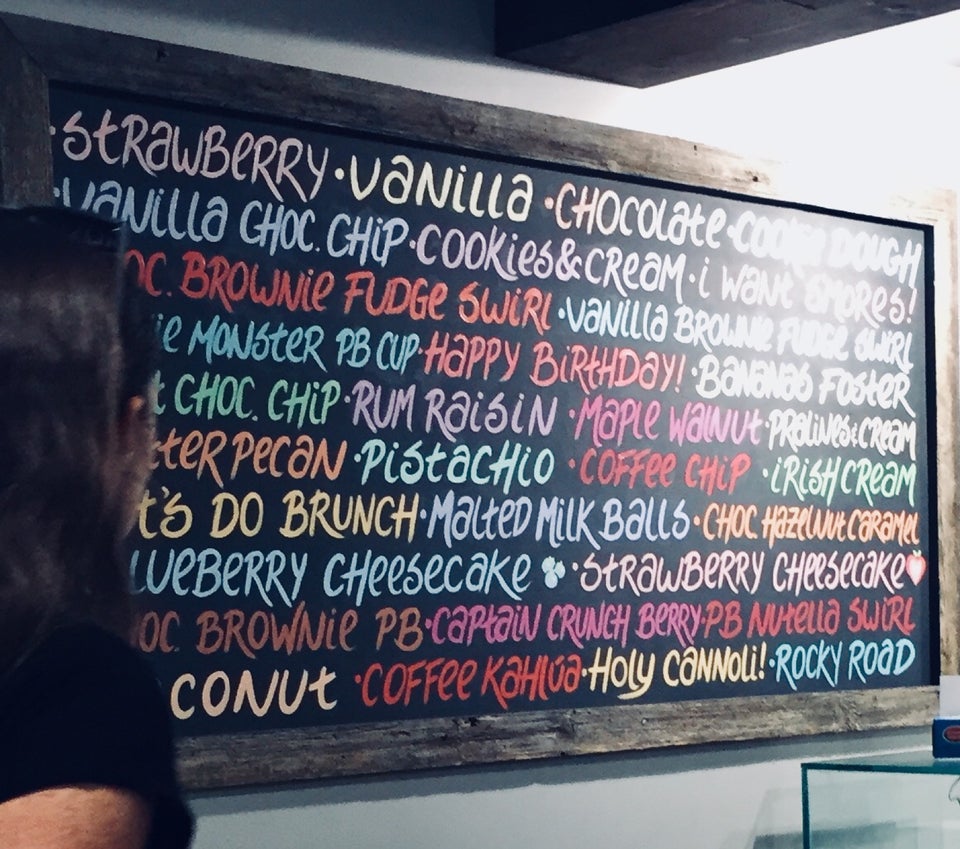 ·STRAWBERRY ·VANILLA ·CHOCOLATE ·COOKIE DOUGH
·VANILLA CHOC. CHIP ·COOKIES & CREAM ·I WANT SMORES!
OC. BROWNIE FUDGE SWIRL ·VANILLA BROWNIE FUDGE SWIRL
IE MONSTER PB CUP ·HAPPY BIRTHDAY! ·BANANAS FOSTER
T CHOC. CHIP ·RUM RAISIN ·MAPLE WALNUT ·PRALINES & CREAM
TTER PECAN ·PISTACHIO ·COFFEE CHIP ·IRISH CREAM
T'S DO BRUNCH ·MALTED MILK BALLS ·CHOC. HAZELNUT CARAMEL
LUEBERRY CHEESECAKE ·STRAWBERRY CHEESECAKE
OC. BROWNIE PB ·CAPTAIN CRUNCH BERRY ·PB NUTELLA SWIRL
CONUT ·COFFEE KAHLÚA ·HOLY CANNOLI! ·ROCKY ROAD